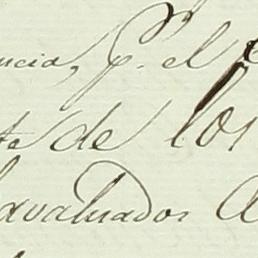 ncia, p. el
te de los
avaluados